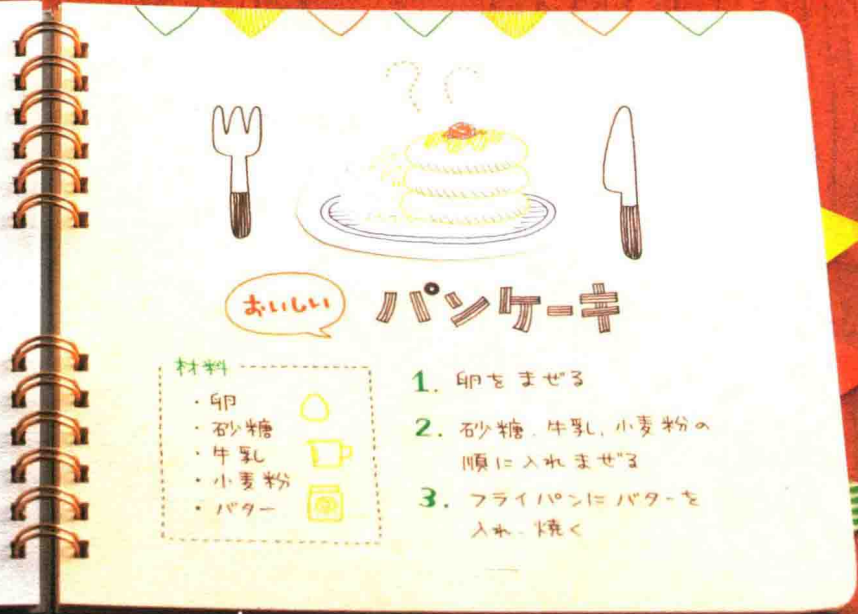 おいしい パンケーキ
材料
・卵
・砂糖
・牛乳
・小麦粉
・バター
1. 卵をまぜる
2. 砂糖、牛乳、小麦粉の
順に入れまぜる
3. フライパンにバターを
入れ、焼く